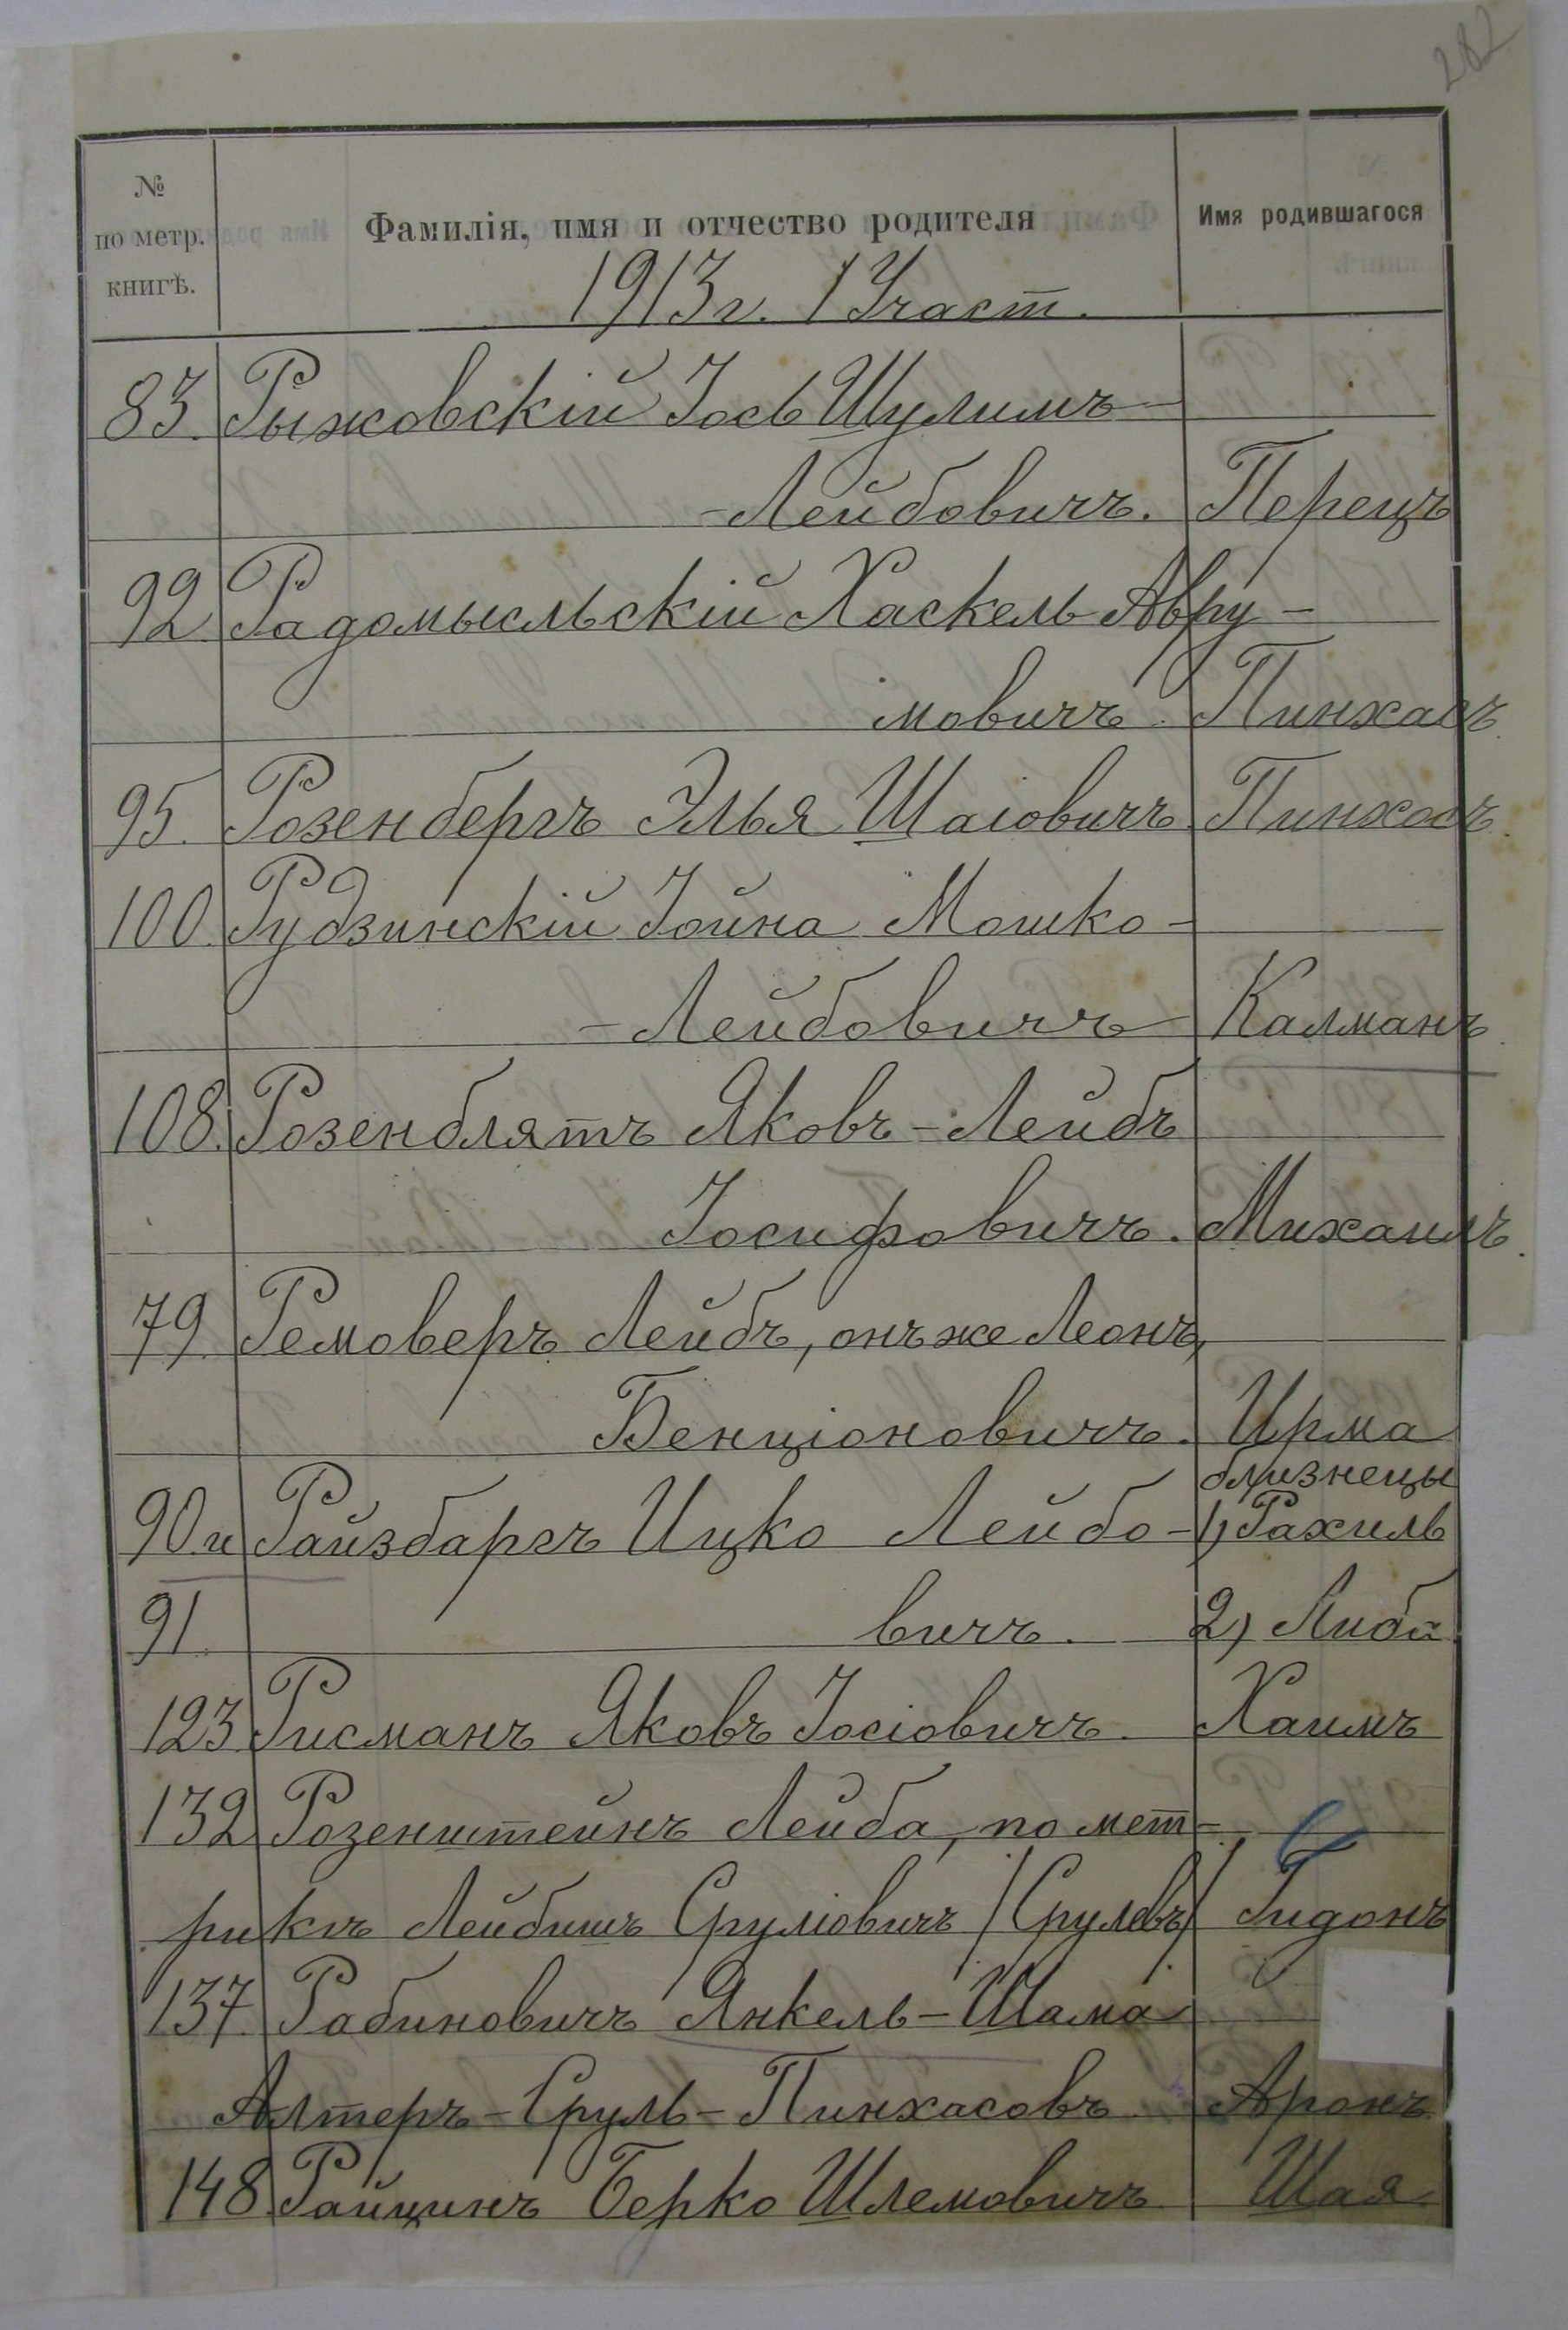 282
№ по метр. книгѣ. Фамилія, имя и отчество родителя Имя родившагося
1913 г. 1 Участ.
83. Рыжовскій Іось Шулимъ-
-Лейбовичъ. Перецъ
92 Радомысльскій Хаскель Авру-
мовичъ. Пинхасъ.
95. Розенбергъ Элья Шаіовичъ. Пинхосъ.
100. Рудзинскій Іойна Мошко-
-Лейбовичъ Калманъ.
108. Розенблятъ Яковъ-Лейбъ
Іосифовичъ. Михаилъ.
79. Ремоверъ Лейбъ, онъ же Леонъ,
Бенціоновичъ. Ирма
близнецы
90 и Райзбаргъ Ицко Лейбо- 1) Рахиль
91. вичъ. 2) Либа
123. Рисманъ Яковъ Іосіовичъ. Хаимъ
132 Розенштейнъ Лейба, по мет-
рикѣ Лейбишъ Сруліовичъ /Срулевъ/ Гидонъ
137. Рабиновичъ Янкель-Шама
Алтеръ-Сруль-Пинхасовъ Аронъ.
148. Райцинъ Берко Шлемовичъ Шая.